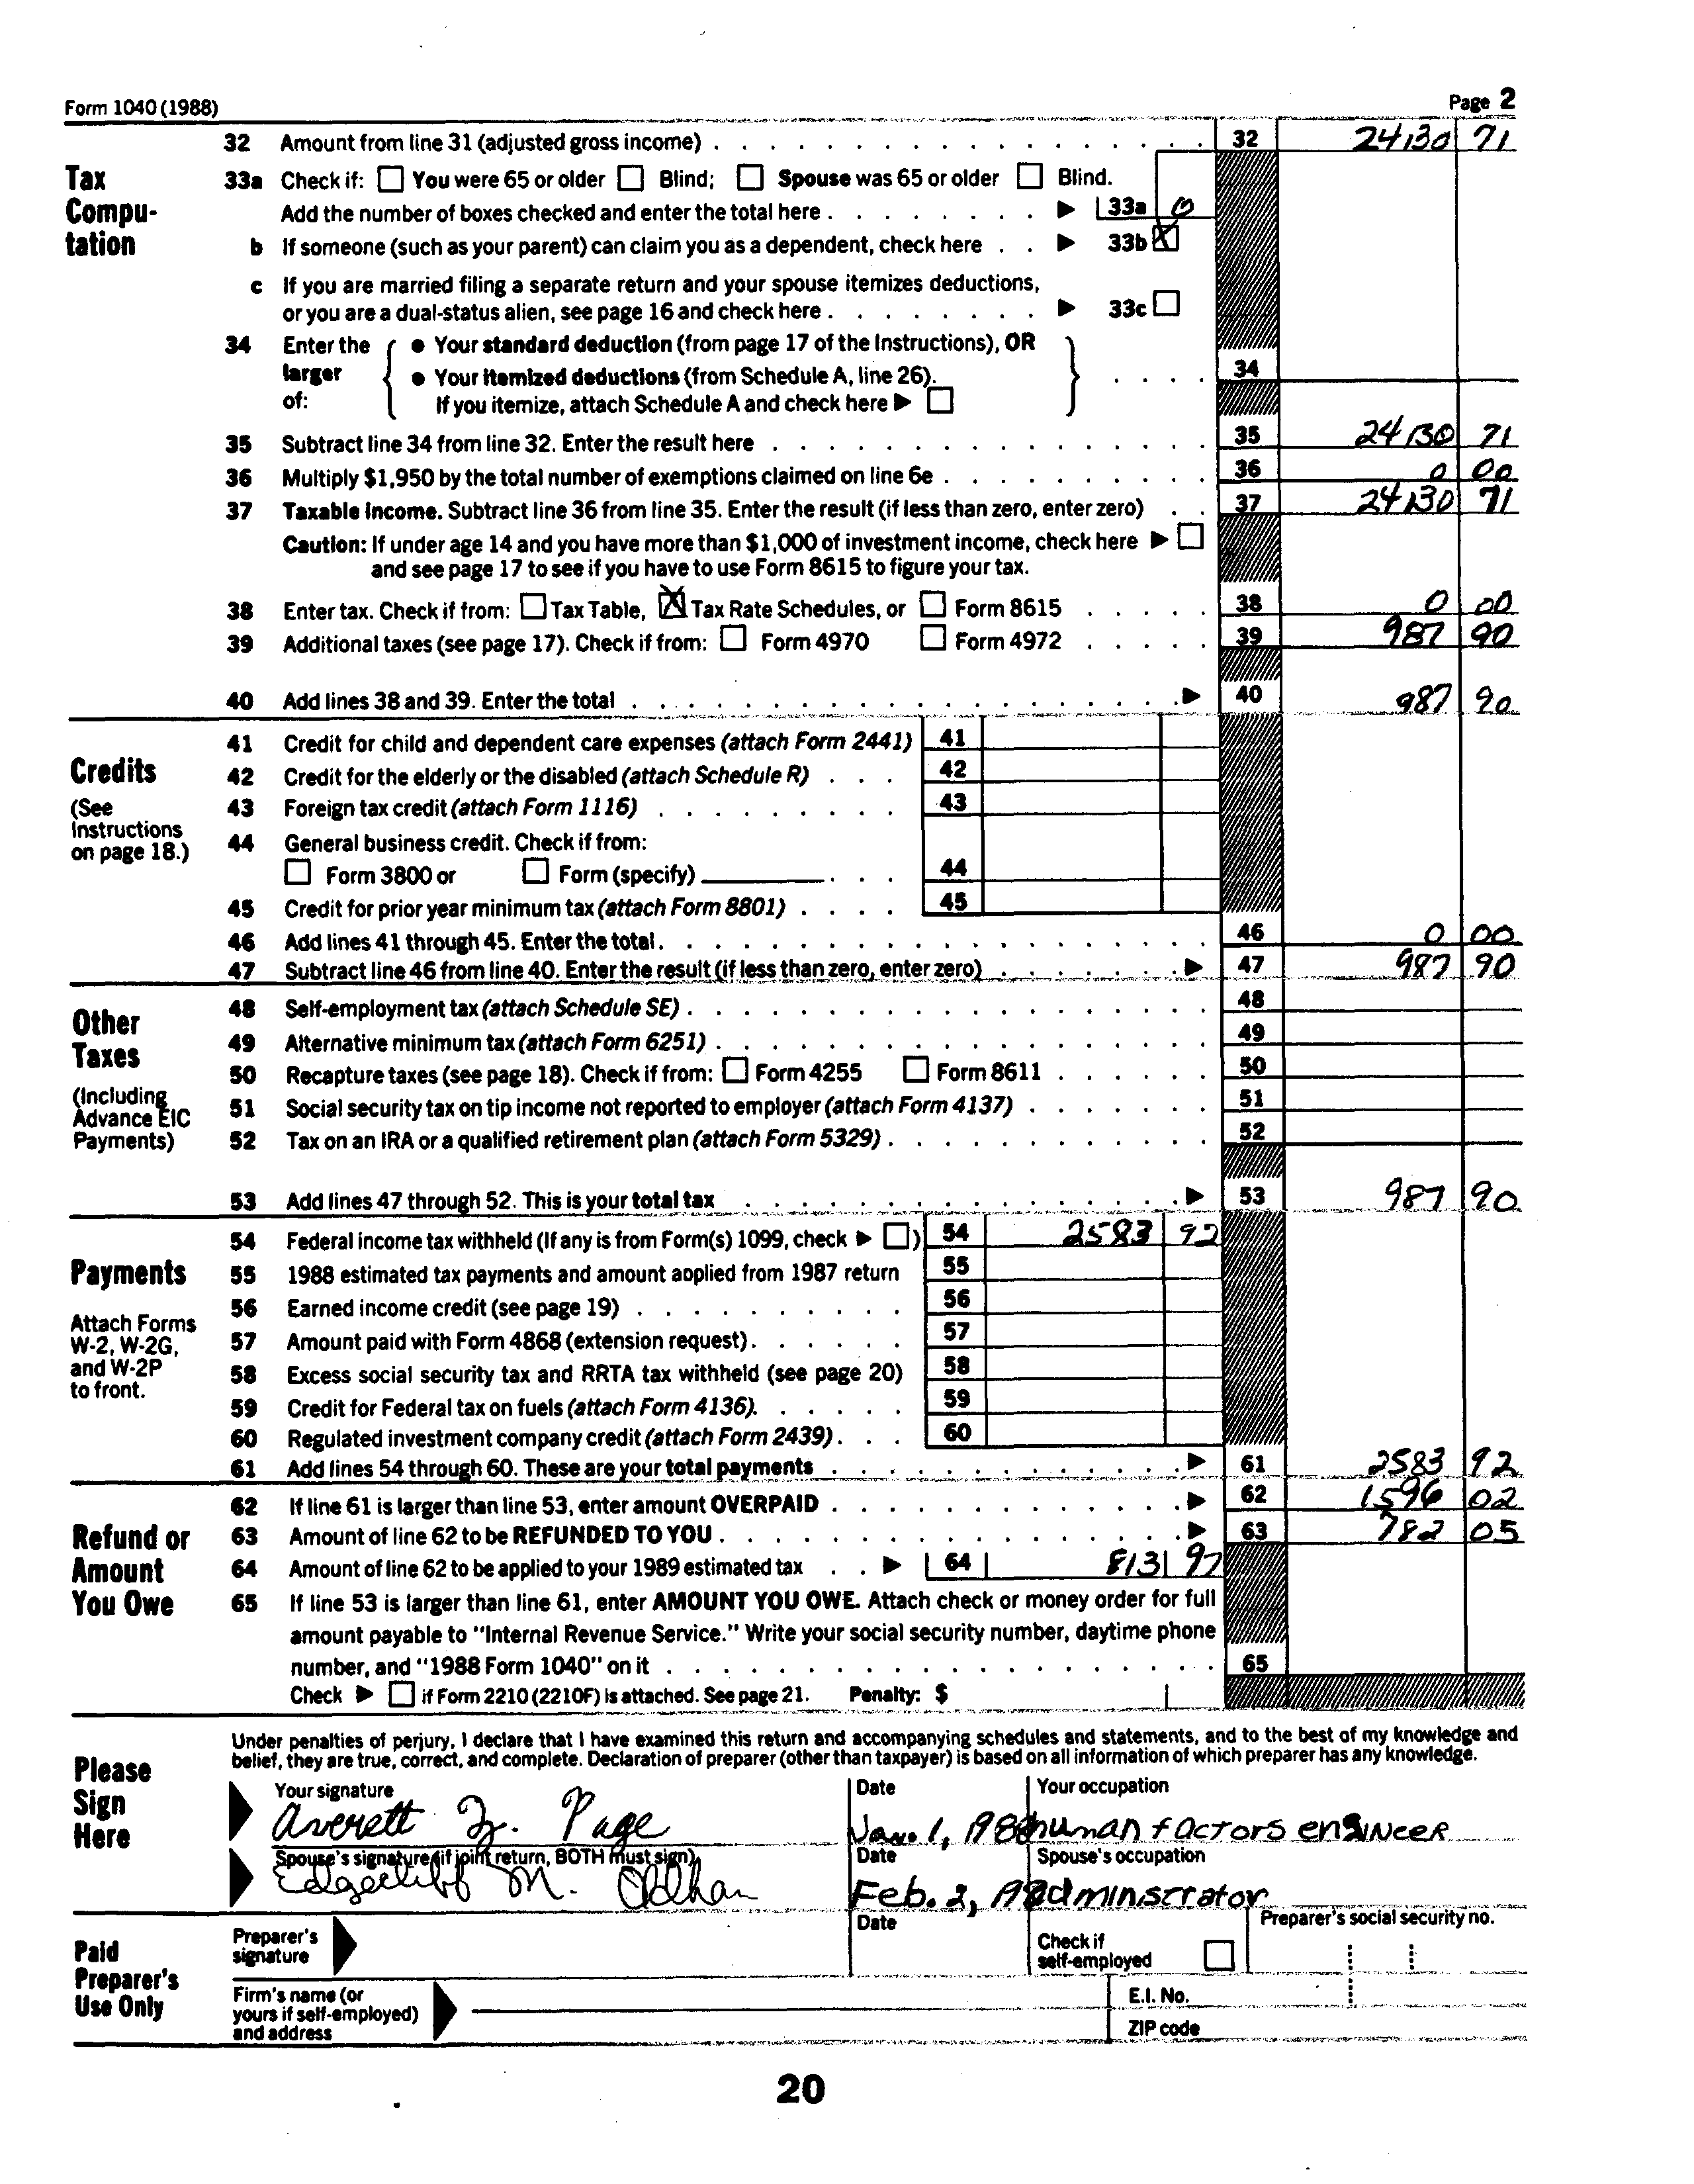 Form 1040 (1988) Page 2
Tax Compu- tation
32 Amount from line 31 (adjusted gross income) 32 24130 71
33a Check if: You were 65 or older Blind; Spouse was 65 or older Blind.
Add the number of boxes checked and enter the total here 33a 0
b If someone (such as your parent) can claim you as a dependent, check here 33b X
c If you are married filing a separate return and your spouse itemizes deductions,
or you are a dual-status alien, see page 16 and check here 33c
34 Enter the larger of: • Your standard deduction (from page 17 of the Instructions), OR
• Your itemized deductions (from Schedule A, line 26). 34
If you itemize, attach Schedule A and check here
35 Subtract line 34 from line 32. Enter the result here 35 24130 71
36 Multiply $1,950 by the total number of exemptions claimed on line 6e 36 0 00
37 Taxable income. Subtract line 36 from line 35. Enter the result (if less than zero, enter zero) 37 24130 71
Caution: If under age 14 and you have more than $1,000 of investment income, check here
and see page 17 to see if you have to use Form 8615 to figure your tax.
38 Enter tax. Check if from: Tax Table, X Tax Rate Schedules, or Form 8615 38 0 00
39 Additional taxes (see page 17). Check if from: Form 4970 Form 4972 39 987 90
40 Add lines 38 and 39. Enter the total 40 987 90
Credits
(See Instructions on page 18.)
41 Credit for child and dependent care expenses (attach Form 2441) 41
42 Credit for the elderly or the disabled (attach Schedule R) 42
43 Foreign tax credit (attach Form 1116) 43
44 General business credit. Check if from:
Form 3800 or Form (specify) 44
45 Credit for prior year minimum tax (attach Form 8801) 45
46 Add lines 41 through 45. Enter the total. 46 0 00
47 Subtract line 46 from line 40. Enter the result (if less than zero, enter zero) 47 987 90
Other Taxes
(Including Advance EIC Payments)
48 Self-employment tax (attach Schedule SE) 48
49 Alternative minimum tax (attach Form 6251) 49
50 Recapture taxes (see page 18). Check if from: Form 4255 Form 8611 50
51 Social security tax on tip income not reported to employer (attach Form 4137) 51
52 Tax on an IRA or a qualified retirement plan (attach Form 5329) 52
53 Add lines 47 through 52. This is your total tax 53 987 90
Payments
Attach Forms W-2, W-2G, and W-2P to front.
54 Federal income tax withheld (If any is from Form(s) 1099, check ) 54 2583 92
55 1988 estimated tax payments and amount applied from 1987 return 55
56 Earned income credit (see page 19) 56
57 Amount paid with Form 4868 (extension request) 57
58 Excess social security tax and RRTA tax withheld (see page 20) 58
59 Credit for Federal tax on fuels (attach Form 4136). 59
60 Regulated investment company credit (attach Form 2439) 60
61 Add lines 54 through 60. These are your total payments 61 2583 92
Refund or Amount You Owe
62 If line 61 is larger than line 53, enter amount OVERPAID 62 1596 02
63 Amount of line 62 to be REFUNDED TO YOU 63 782 05
64 Amount of line 62 to be applied to your 1989 estimated tax 64 813 97
65 If line 53 is larger than line 61, enter AMOUNT YOU OWE. Attach check or money order for full
amount payable to "Internal Revenue Service." Write your social security number, daytime phone
number, and "1988 Form 1040" on it 65
Check if Form 2210 (2210F) is attached. See page 21. Penalty: $
Please Sign Here
Under penalties of perjury, I declare that I have examined this return and accompanying schedules and statements, and to the best of my knowledge and
belief, they are true, correct, and complete. Declaration of preparer (other than taxpayer) is based on all information of which preparer has any knowledge.
Your signature Date Your occupation
Averett Page Jan. 1, human factors engineer
Spouse's signature (if joint return, BOTH must sign) Date Spouse's occupation
Edgecliff M. Oldhan Feb. 2,
Paid Preparer's Use Only
Preparer's signature Date Check if self-employed Preparer's social security no.
Firm's name (or yours if self-employed) and address E.I. No.
ZIP code
20